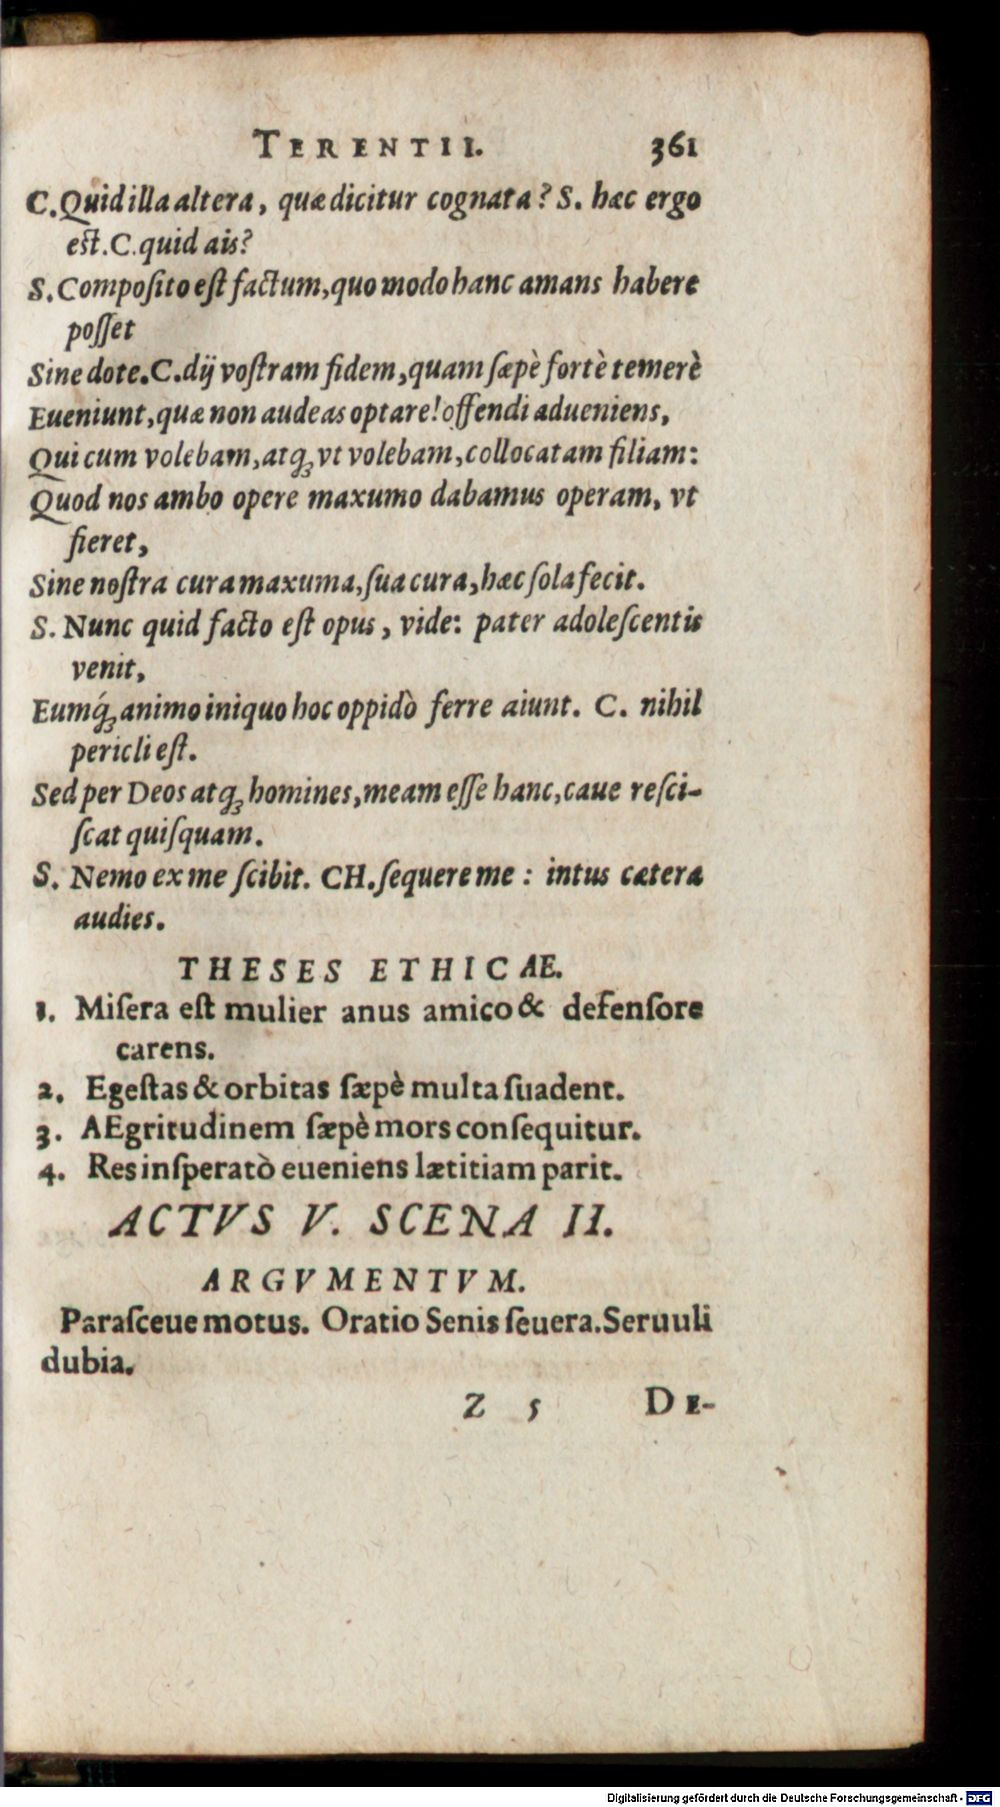 TERENTII. 361
C. Quid illa altera, quæ dicitur cognata? S. hæc ergo
est. C. quid ais?
S. Compoſito eſt factum, quo modo hanc amans habere
poſſet
Sine dote. C. dij voſtram fidem, quam ſæpè fortè temerè
Eueniunt, quæ non audeas optare! offendi adueniens,
Qui cum volebam, atq́ꝫ vt volebam, collocatam filiam:
Quod nos ambo opere maxumo dabamus operam, vt
fieret,
Sine noſtra cura maxuma, ſua cura, hæc ſola fecit.
S. Nunc quid facto eſt opus, vide: pater adoleſcentis
venit,
Eumq́ꝫ animo iniquo hoc oppidò ferre aiunt. C. nihil
pericli eſt.
Sed per Deos atqꝫ homines, meam eſſe hanc, caue reſci-
ſcat quiſquam.
S. Nemo ex me ſcibit. CH. ſequere me: intus cætera
audies.
THESES ETHICAE.
1. Miſera eſt mulier anus amico & defenſore
carens.
2. Egeſtas & orbitas ſæpè multa ſuadent.
3. AEgritudinem ſæpè mors conſequitur.
4. Res inſperatò eueniens lætitiam parit.
ACTVS V. SCENA II.
ARGVMENTVM.
Paraſceue motus. Oratio Senis ſeuera. Seruuli
dubia.
Z 5 DE-
Digitalisierung gefördert durch die Deutsche Forschungsgemeinschaft - DFG